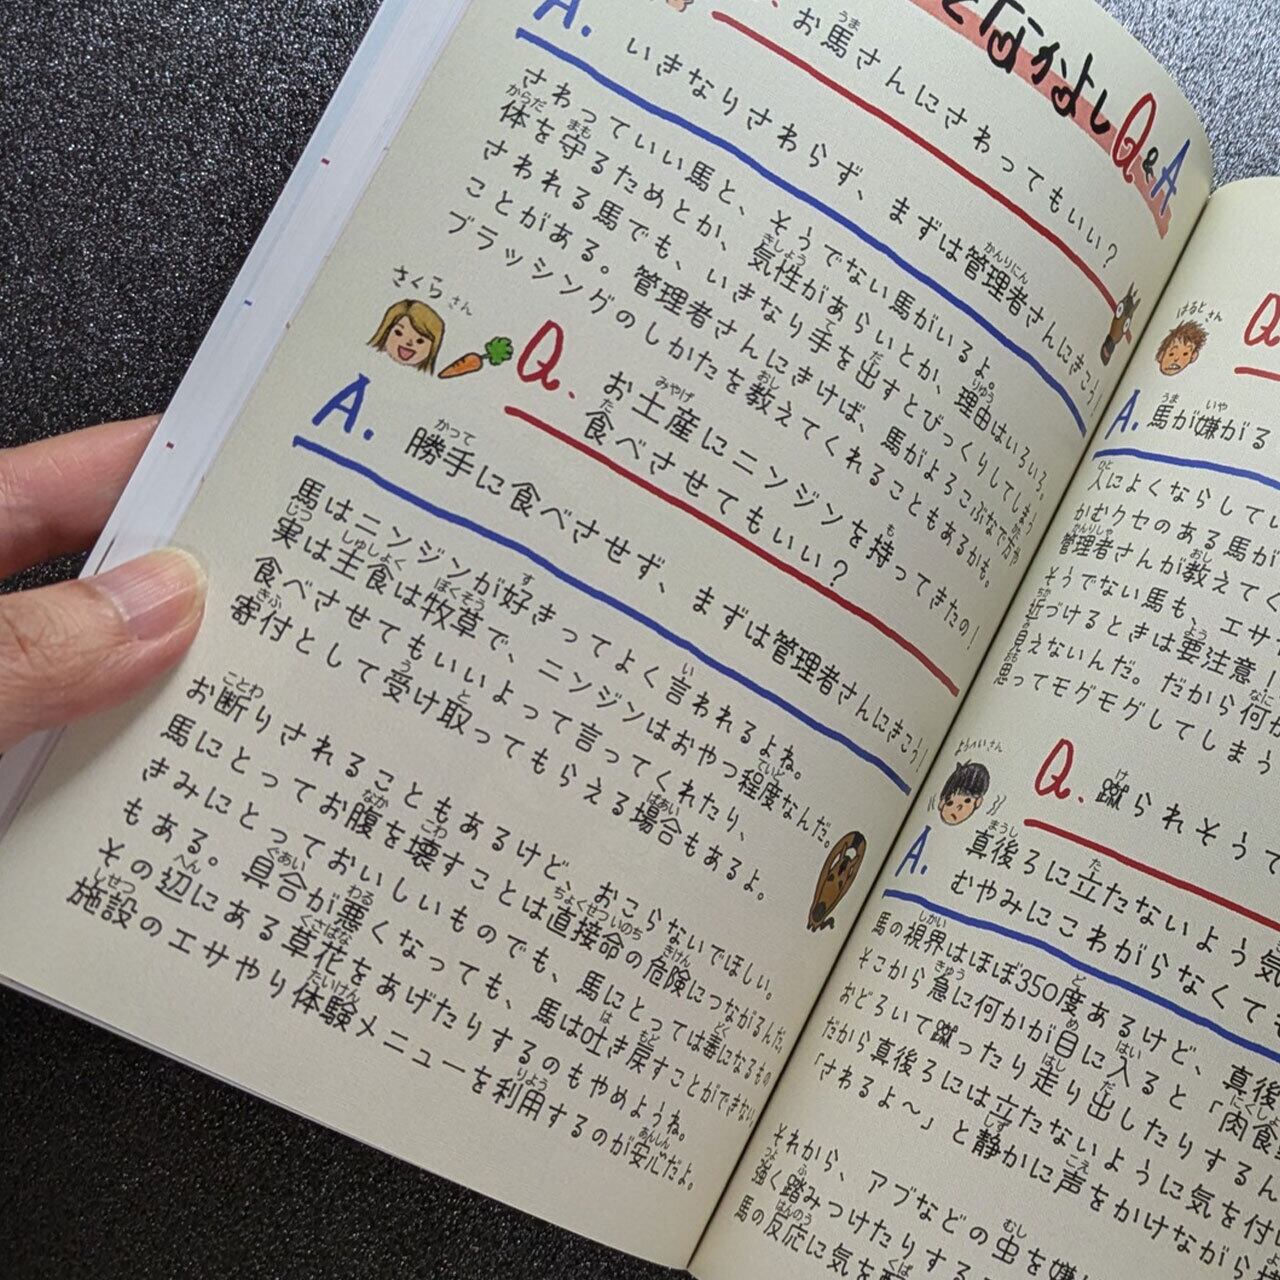 となかよしQ&A
Q. お馬さんにさわってもいい?
A. いきなりさわらず、まずは管理者さんにきこう!
さわっていい馬と、そうでない馬がいるよ。
体を守るためとか、気性があらいとか、理由はいろいろ。
さわれる馬でも、いきなり手を出すとびっくりしてしまう
ことがある。管理者さんにきけば、馬がよろこぶなで方や
ブラッシングのしかたを教えてくれることもあるかも。
さくらさん
Q. お土産にニンジンを持ってきたの!
食べさせてもいい?
A. 勝手に食べさせず、まずは管理者さんにきこう!
馬はニンジンが好きってよく言われるよね。
実は主食は牧草で、ニンジンはおやつ程度なんだ。
食べさせてもいいよって言ってくれたり、
寄付として受け取ってもらえる場合もあるよ。
お断りされることもあるけど、おこらないでほしい。
馬にとってお腹を壊すことは直接命の危険につながるんだ。
きみにとっておいしいものでも、馬にとっては毒になるもの
もある。具合が悪くなっても、馬は吐き戻すことができない。
その辺にある草花をあげたりするのもやめようね。
施設のエサやり体験メニューを利用するのが安心だよ。
はるとさん
Q
A. 馬が嫌がる
人によくならしてい
かむクセのある馬が
管理者さんが教えてく
そうでない馬も、エサ
近づけるときは要注意!
見えないんだ。だから何か
思ってモグモグしてしまう
ようへいさん
Q. 蹴られそうで
A. 真後ろに立たないよう気
むやみにこわがらなくて
馬の視界はほぼ350度あるけど、真後
そこから急に何かが目に入ると「肉食
おどろいて蹴ったり走り出したりするん
だから真後ろには立たないように気を付
「さわるよ〜」と静かに声をかけながら
それから、アブなどの虫を嫌
強く踏みつけたりする
馬の反応に気を